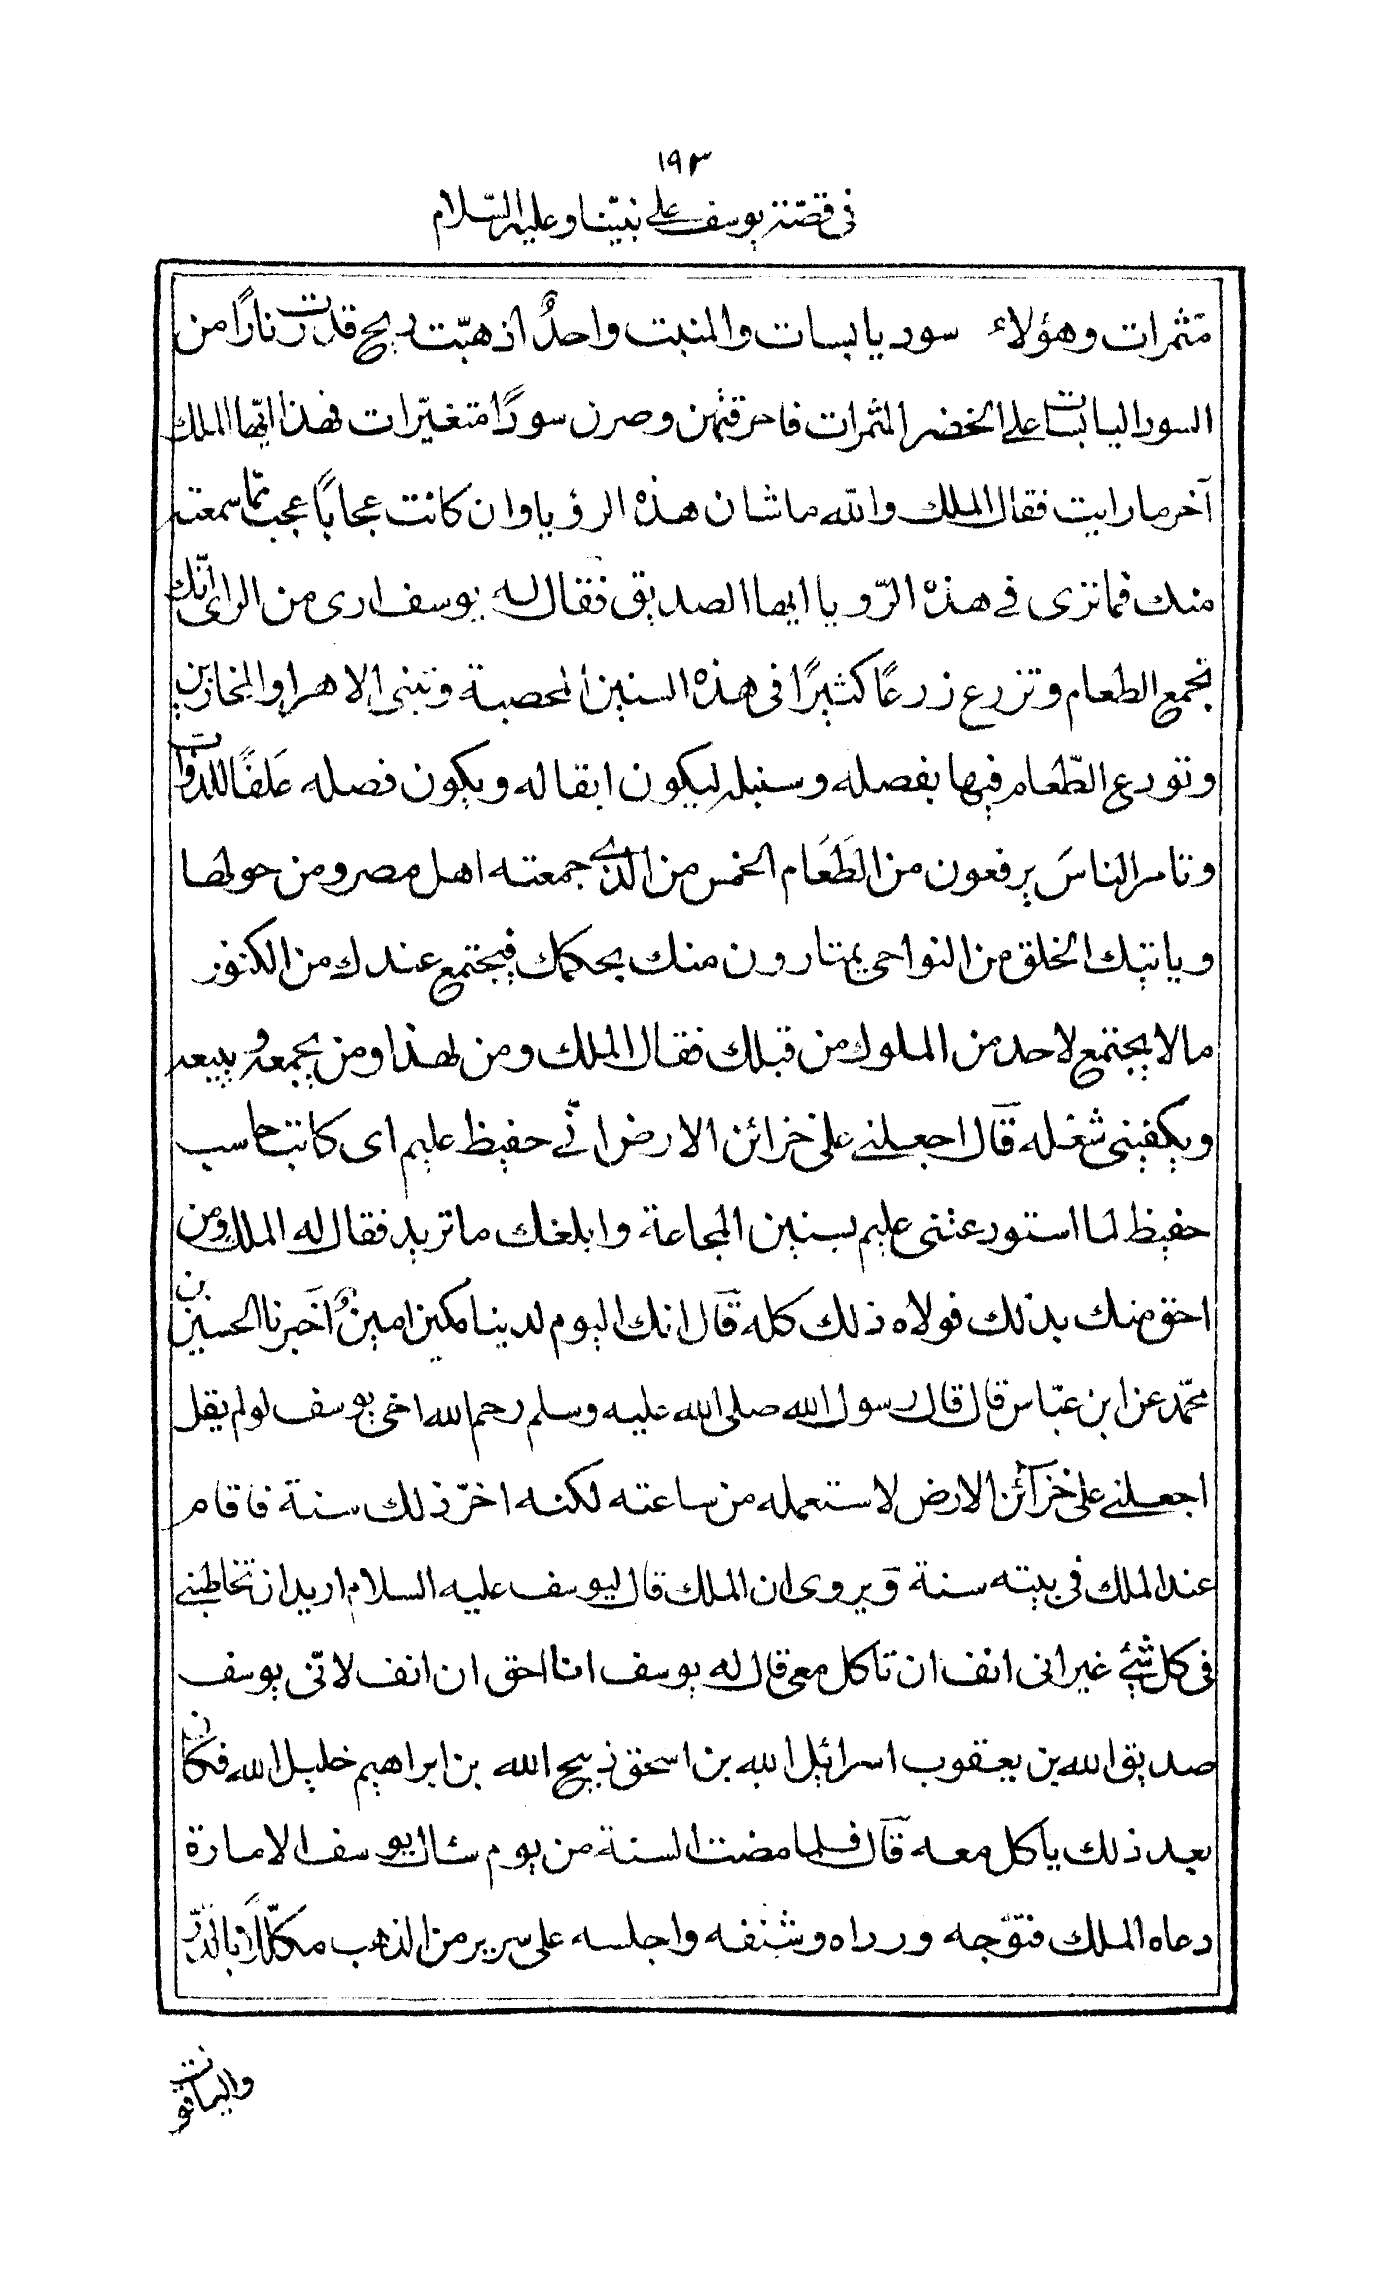 ١٩٣
في قصّة يوسف على نبيّنا وعليه السّلام
مثمرات وهؤلاء سود يابسات والمنبت واحدٌ اذ هبّت ريح قدرت نارًا من
السود اليابسات على الخضر المثمرات فاحرقتهن وصرن سودًا متغيّرات فهذا ايّها الملك
آخر ما رايت فقال الملك والله ما شان هذه الرؤيا وان كانت عجابًا عجب ممّا سمعته
منك فما ترى في هذه الرّويا ايها الصديق فقال له يوسف ارى من الراى انّك
تجمع الطعام وتزرع زرعًا كثيرًا في هذه السنين المخصبة وتبنى الاهرا والمخازين
وتودع الطّعام فيها بقصله وسنبله ليكون ابقا له ويكون قصله علفًا للدّوات
وتامر الناسَ يرفعون من الطَعَام الخمس من الذى جمعته اهل مصر ومن حولها
وياتيك الخلق من النواحى يمتارون منك بحكمك فيجتمع عندك من الكنوز
مالا يجتمع لاحد من الملوك من قبلك فقال الملك ومن لهذا ومن يجمعه ويبيعه
ويكفينى شغله قال اجعلنى على خزائن الارض انّى حفيظ عليم اى كاتب حاسب
حفيظ لما استودعتنى عليم بسنين المجاعة وابلغك ما تريد فقال له الملك ومن
احق منك بذلك فولاه ذلك كله قال انك اليوم لدينا مكين امينٌ اخبرنا الحسين بن
محمّد عن ابن عبّاس قال قال رسول الله صلى الله عليه وسلم رحم الله اخى يوسف لو لم يقل
اجعلنى على خزآئن الارض لاستعمله من ساعته لكنه اخرّ ذلك سنة فاقام
عند الملك في بيته سنة ويروى ان الملك قال ليوسف عليه السلام اريد ان تخاطبنى
في كل شئ غير انى انف ان تاكل معى قال له يوسف انا احق ان انف لانّى يوسف
صديق الله بن يعقوب اسرائيل الله بن اسحق ذبيح الله بن ابراهيم خليل الله فكان
بعد ذلك ياكل معه قال فلما مضت السنة من يوم سال يوسف الامارة
دعاه الملك فتوّجه ورداه وشنفه واجلسه على سرير من الذهب مكلّلًا بالدّر
واليـاقوت